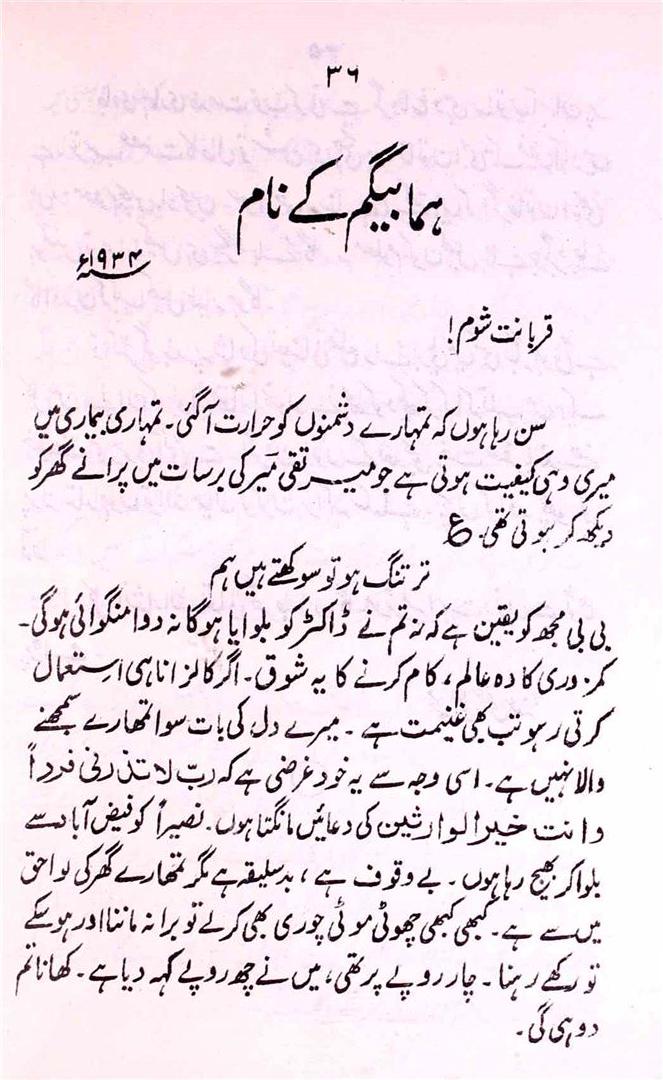 ۳۶
ہما بیگم کے نام
سنہ ۱۹۳۴ء
قربانت شوم!
سن رہا ہوں کہ تمہارے دشمنوں کو حرارت آگئی۔ تمہاری بیماری میں
میری وہی کیفیت ہوتی ہے جو میر تقی میر کی برسات میں پرانے گھر کو
دیکھ کر ہوتی تھی۔ ع
تر تنگ ہو تو سوکھتے ہیں ہم
بی بی مجھ کو یقین ہے کہ نہ تم نے ڈاکٹر کو بلوایا ہوگا نہ دوا منگوائی ہوگی۔
کمزوری کا وہ عالم، کام کرنے کا یہ شوق۔ اگر کالزانا ہی استعمال
کرتی رہو تب بھی غنیمت ہے۔ میرے دل کی بات سوا تمھارے سمجھنے
والا نہیں ہے۔ اسی وجہ سے یہ خود غرضی ہے کہ ربّ لا تذرنی فرداً
وانت خیر الوارثین کی دعائیں مانگتا ہوں۔ نصیراً کو فیض آباد سے
بلوا کر بھیج رہا ہوں۔ بے وقوف ہے، بدسلیقہ ہے مگر تمھارے گھر کی لواحق
میں سے ہے۔ کبھی کبھی چھوٹی موٹی چوری بھی کرلے تو برا نہ ماننا اور ہو سکے
تو رکھے رہنا۔ چار روپے پر تھی، میں نے چھ روپے کہہ دیا ہے۔ کھانا تم
دو ہی گی۔